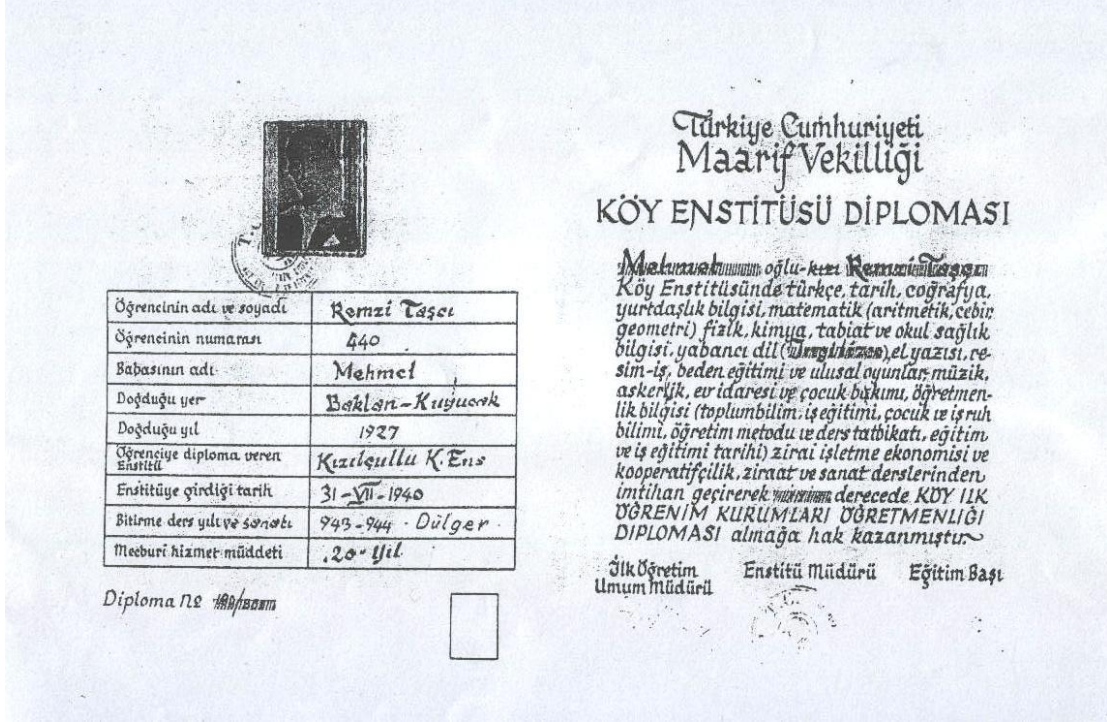 Öğrencinin adı ve soyadı Remzi Taşcı
Öğrencinin numarası 440
Babasının adı Mehmet
Doğduğu yer Baklan-Kuyucak
Doğduğu yıl 1927
Öğrenciye diploma veren Enstitü Kızılçullu K. Ens
Enstitüye girdiği tarih 31-VII-1940
Bitirme ders yılı ve sanatı 943-944 - Dülger
Mecburi hizmet müddeti 20-yıl
Diploma No
Türkiye Cumhuriyeti
Maarif Vekilliği
KÖY ENSTİTÜSÜ DİPLOMASI
Mehmet oğlu-kızı Remzi Taşcı
Köy Enstitüsünde türkçe, tarih, coğrafya,
yurtdaşlık bilgisi, matematik (aritmetik, cebir,
geometri) fizik, kimya, tabiat ve okul sağlık
bilgisi, yabancı dil (), el yazısı, re-
sim-iş, beden eğitimi ve ulusal oyunlar, müzik,
askerlik, ev idaresi ve çocuk bakımı, öğretmen-
lik bilgisi (toplumbilim, iş eğitimi, çocuk ve iş ruh
bilimi, öğretim metodu ve ders tatbikatı, eğitim
ve iş eğitimi tarihi) zirai işletme ekonomisi ve
kooperatifçilik, ziraat ve sanat derslerinden
imtihan geçirerek derecede KÖY İLK
ÖĞRENİM KURUMLARI ÖĞRETMENLİĞİ
DİPLOMASI almağa hak kazanmıştır
İlk Öğretim Umum Müdürü
Enstitü Müdürü
Eğitim Başı